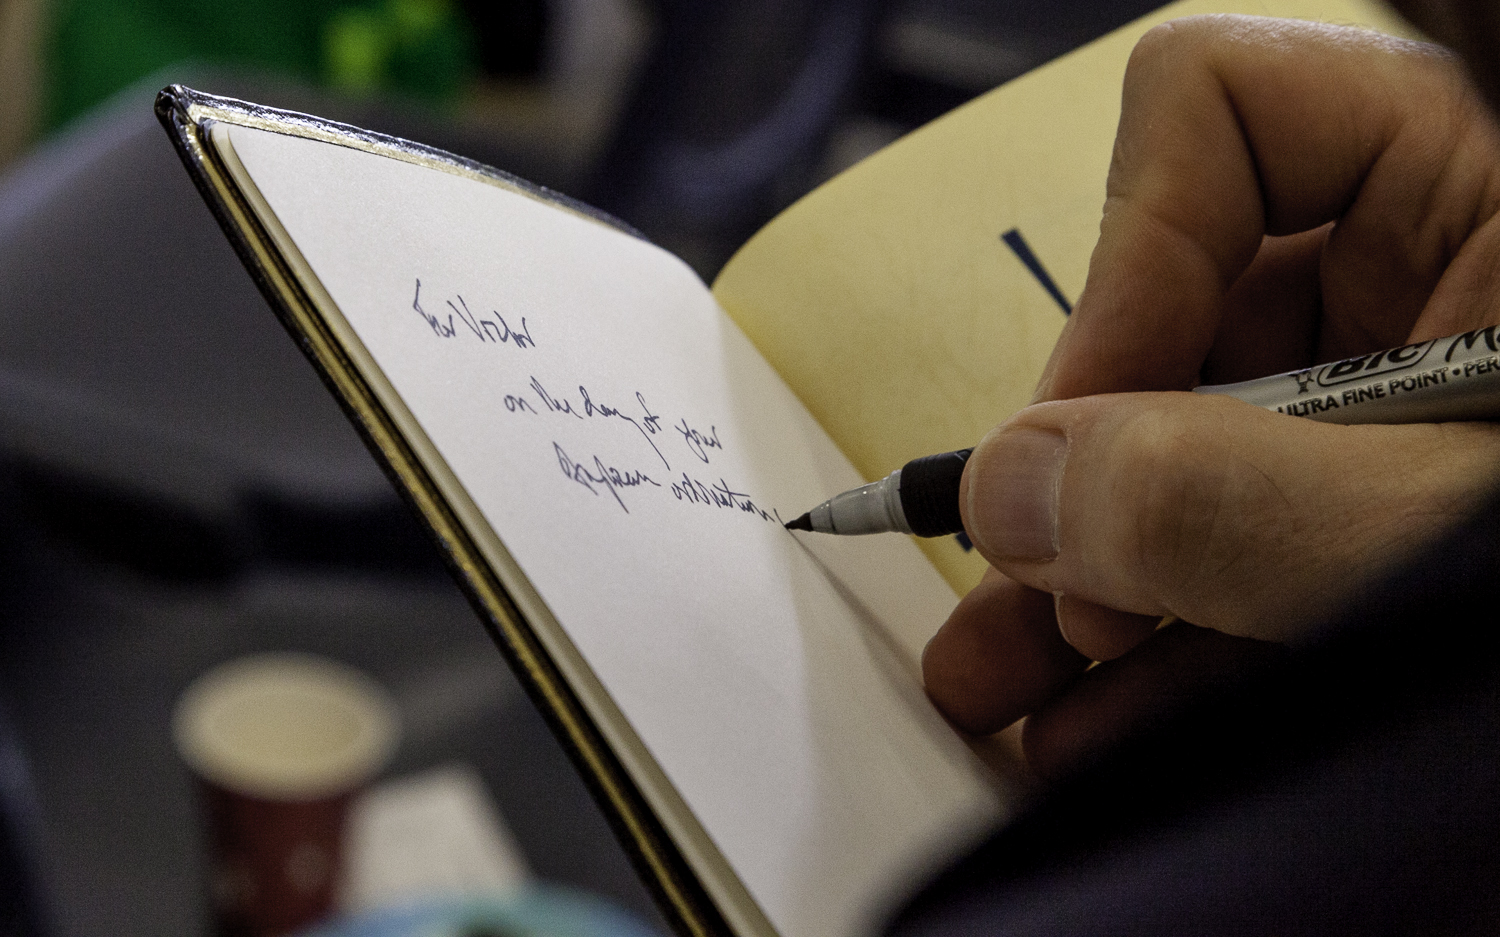 For Victor
on the day of your
BIC
ULTRA FINE POINT • PER